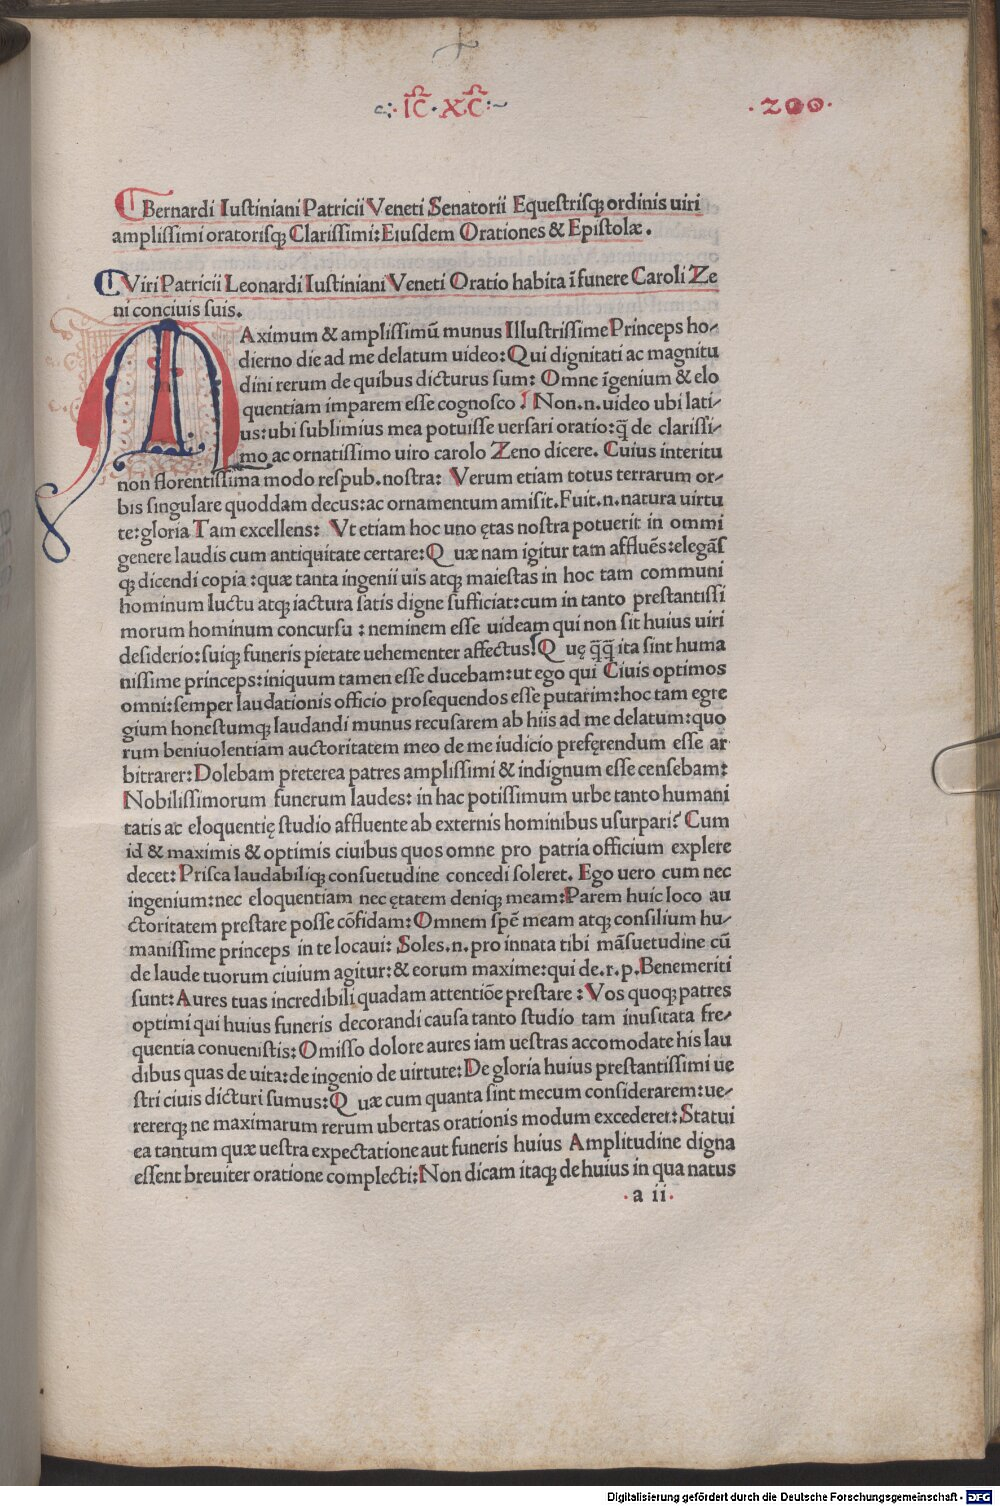 ·IC̅·XC̅·
·200·
Bernardi Iustiniani Patricii Veneti Senatorii Equestrisqꝫ ordinis uiri
amplissimi oratorisqꝫ Clarissimi: Eiusdem Orationes & Epistolæ.
Viri Patricii Leonardi Iustiniani Veneti Oratio habita ī funere Caroli Ze
ni conciuis suis.
MAximum & amplissimū munus Illustrissime Princeps ho-
dierno die ad me delatum uideo: Qui dignitati ac magnitu
dini rerum de quibus dicturus sum: Omne īgenium & elo
quentiam imparem esse cognosco! Non.n.uideo ubi lati-
us: ubi sublimius mea potuisse uersari oratio: q̄ de clarissi-
mo ac ornatissimo uiro carolo Zeno dicere. Cuius interitu
non florentissima modo respub.nostra: Verum etiam totus terrarum or-
bis singulare quoddam decus: ac ornamentum amisit. Fuit.n.natura uirtu
te: gloria Tam excellens: Vt etiam hoc uno ętas nostra potuerit in ommi
genere laudis cum antiquitate certare: Q uæ nam igitur tam affluēs: elegās
qꝫ dicendi copia: quæ tanta ingenii uis atqꝫ maiestas in hoc tam communi
hominum luctu atqꝫ iactura satis digne sufficiat: cum in tanto prestantissi
morum hominum concursu: neminem esse uideam qui non sit huius uiri
desiderio: suiqꝫ funeris pietate uehementer affectus! Q uę q̄q̄ ita sint huma
nissime princeps: iniquum tamen esse ducebam: ut ego qui Ciuis optimos
omni: semper laudationis officio prosequendos esse putarim: hoc tam egre
gium honestumqꝫ laudandi munus recusarem ab hiis ad me delatum: quo
rum beniuolentiam auctoritatem meo de me iudicio pręferendum esse ar
bitrarer: Dolebam preterea patres amplissimi & indignum esse censebam:
Nobilissimorum funerum laudes: in hac potissimum urbe tanto humani
tatis ac eloquentię studio affluente ab externis hominibus usurpari? Cum
id & maximis & optimis ciuibus quos omne pro patria officium explere
decet: Prisca laudabiliqꝫ consuetudine concedi soleret. Ego uero cum nec
ingenium: nec eloquentiam nec ętatem deniqꝫ meam: Parem huic loco au
ctoritatem prestare posse cōfidam: Omnem spē meam atqꝫ consilium hu-
manissime princeps in te locaui: Soles.n.pro innata tibi māsuetudine cū
de laude tuorum ciuium agitur: & eorum maxime: qui de.r.p.Benemeriti
sunt: Aures tuas incredibili quadam attentiōe prestare: Vos quoqꝫ patres
optimi qui huius funeris decorandi causa tanto studio tam inusitata fre-
quentia conuenistis: Omisso dolore aures iam uestras accomodate his lau
dibus quas de uita: de ingenio de uirtute: De gloria huius prestantissimi ue
stri ciuis dicturi sumus: Q uæ cum quanta sint mecum considerarem: ue-
rererqꝫ ne maximarum rerum ubertas orationis modum excederet: Statui
ea tantum quæ uestra expectatione aut funeris huius Amplitudine digna
essent breuiter oratione complecti: Non dicam itaqꝫ de huius in qua natus
·a ii·
Digitalisierung gefördert durch die Deutsche Forschungsgemeinschaft - DFG